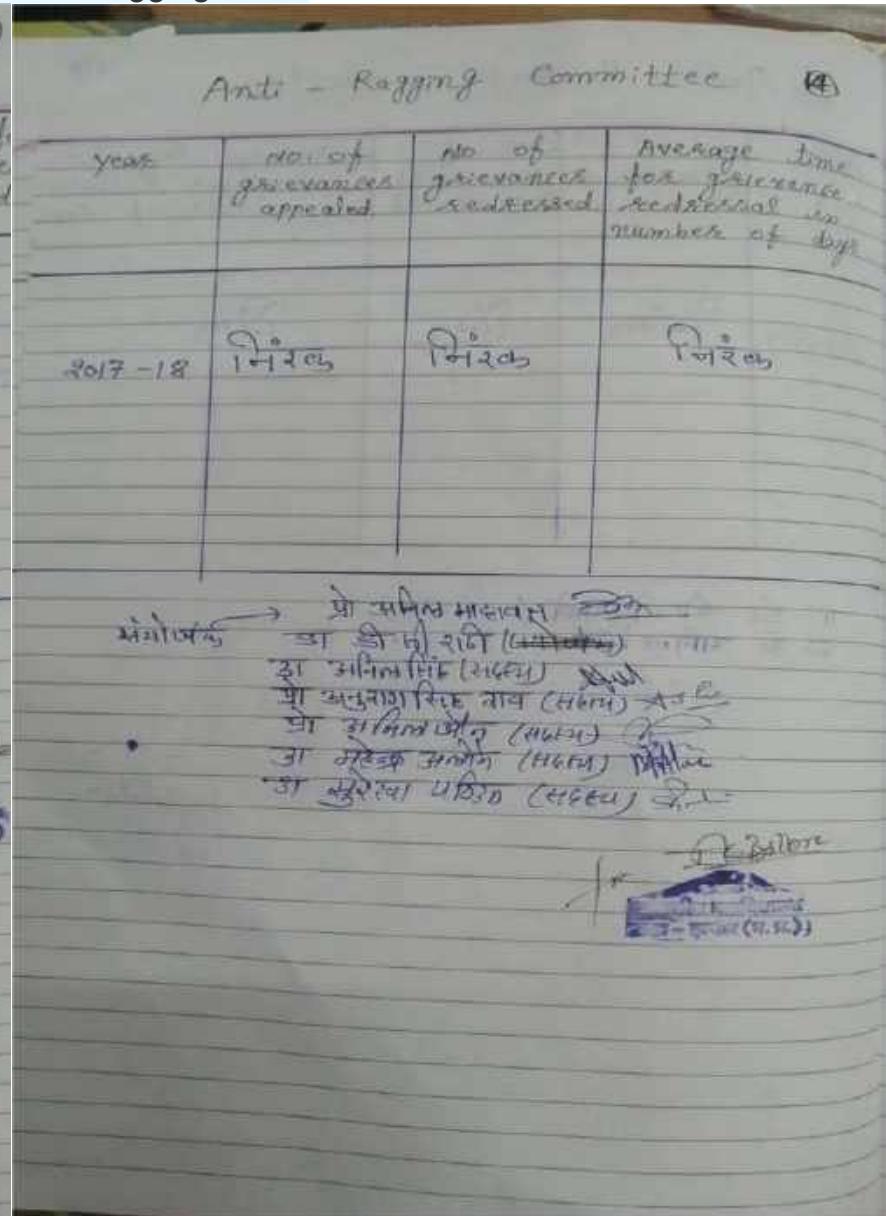 Anti - Ragging Committee 4
Year
No. of grievances appealed
No of grievances redressed
Average time for grievance redressal in number of days
2017 - 18
निरंक
निरंक
निरंक
संयोजक → प्रो अनिल
डा डी
डा अनिल सिंह (सदस्य)
प्रो अनुराग सिंह राव (सदस्य)
प्रो अनिल जैन (सदस्य)
डा (सदस्य)
डा सुरेखा (सदस्य)
(म.प्र.)